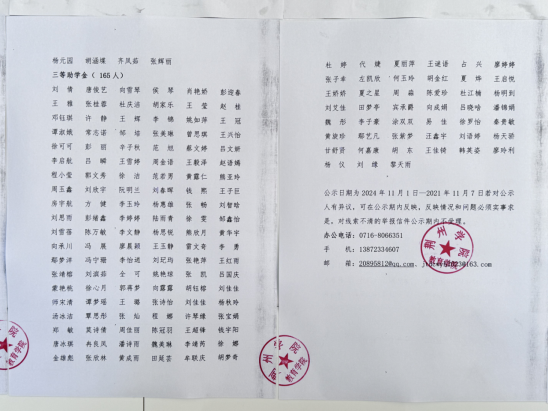 杨元园 胡涵煤 齐凤茹 张辉丽
三等助学金（165人）
刘倩 唐俊艺 向雪琴 侯琴 肖艳娇 彭迎春
王雅 张桂蓉 杜庆洁 胡家乐 王莹 赵桂
邓钰琪 许静 王辉 李锦 姚如萍 王冠
谭淑娥 常志诺 邹培 张美琳 曾思琪 王兴怡
徐可可 彭丽 辛子秋 范旭 蔡文婷 吕文娇
李启航 吕嶙 王雪婷 周金语 王毅泽 赵语嫣
程小莹 郭文秀 徐洁 范若男 黄露仁 熊亚玲
周玉鑫 刘欣宇 阮明兰 刘春晖 钱熙 王子巨
房宇航 方健 李玉玲 杨惠雄 张畅 刘智晗
刘思雨 彭绪鑫 李婷婷 陆雨青 徐雯 邹鑫怡
刘雪蓓 陈万敏 李文静 杨思悦 熊欣月 黄华宇
向承川 冯晨 廖晨颖 王玉静 雷文奇 李勇
鄢梦洋 冯宁珊 李怡进 刘玘玓 张艳萍 王红雨
张靖榕 刘滨茹 全可 姚艳球 张凯 吕国庆
童艳桃 徐心月 郭苒梦 向露露 胡钰榕 刘佳佳
师宋清 谭梦瑶 王璐 张诗怡 刘佳佳 杨秋玲
汤冰洁 覃思彤 张灿 程娜 许琴缘 张宝娟
郑敏 莫诗倩 周佳丽 陈冠羽 王超锋 钱宇阳
唐冰琪 冉良凤 潘诗雨 魏美琳 李靖筠 徐娜
金雄彪 张欣林 黄成雨 田延芸 牟联庆 胡梦奇
杜婷 代婕 夏丽萍 王谜语 占兴 廖婷婷
张子幸 左凯欣 何玉玲 胡金红 夏烨 王启悦
王娇娇 夏之星 周淼 陈爱珍 杜江楠 杨明利
刘艾佳 田梦亭 宾承爵 向成娟 吕晓晗 潘锦娟
魏创 李子豪 涂双双 易佳 徐罗怡 秦贵敏
黄旋珍 鄢艺凡 张紫梦 汪鑫宇 刘语婷 杨天骄
甘舒贤 何嘉薇 胡东 王佳铸 韩英姿 廖玲利
杨仪 刘缘 黎天雨
公示日期为2024年11月1日—2021年11月7日若对公示
人有异议，可在公示期内反映。反映情况和问题必须实事求
是，对线索不清的举报信件公示期内不受理。
办公电话：0716-8066351
手机：13872334607
邮箱：20895812@qq.com、
教育学院